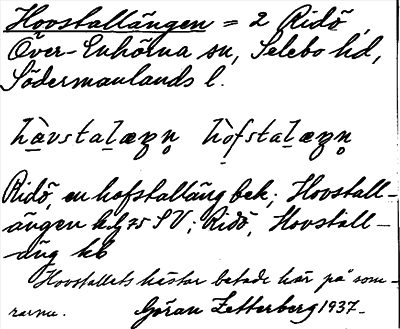 Hovstallängen = 2 Ridö,
Över-Enhörna sn, Selebo hd,
Södermanlands l.
hàvstalæŋn hòfstalæŋn
Ridö, en hofstalläng bek; Hovstall-
ängen k. J 75 SV; Ridö, Hovstall-
äng kb
Hovstallets hästar betade här på som-
rarna. Göran Zetterberg 1937.